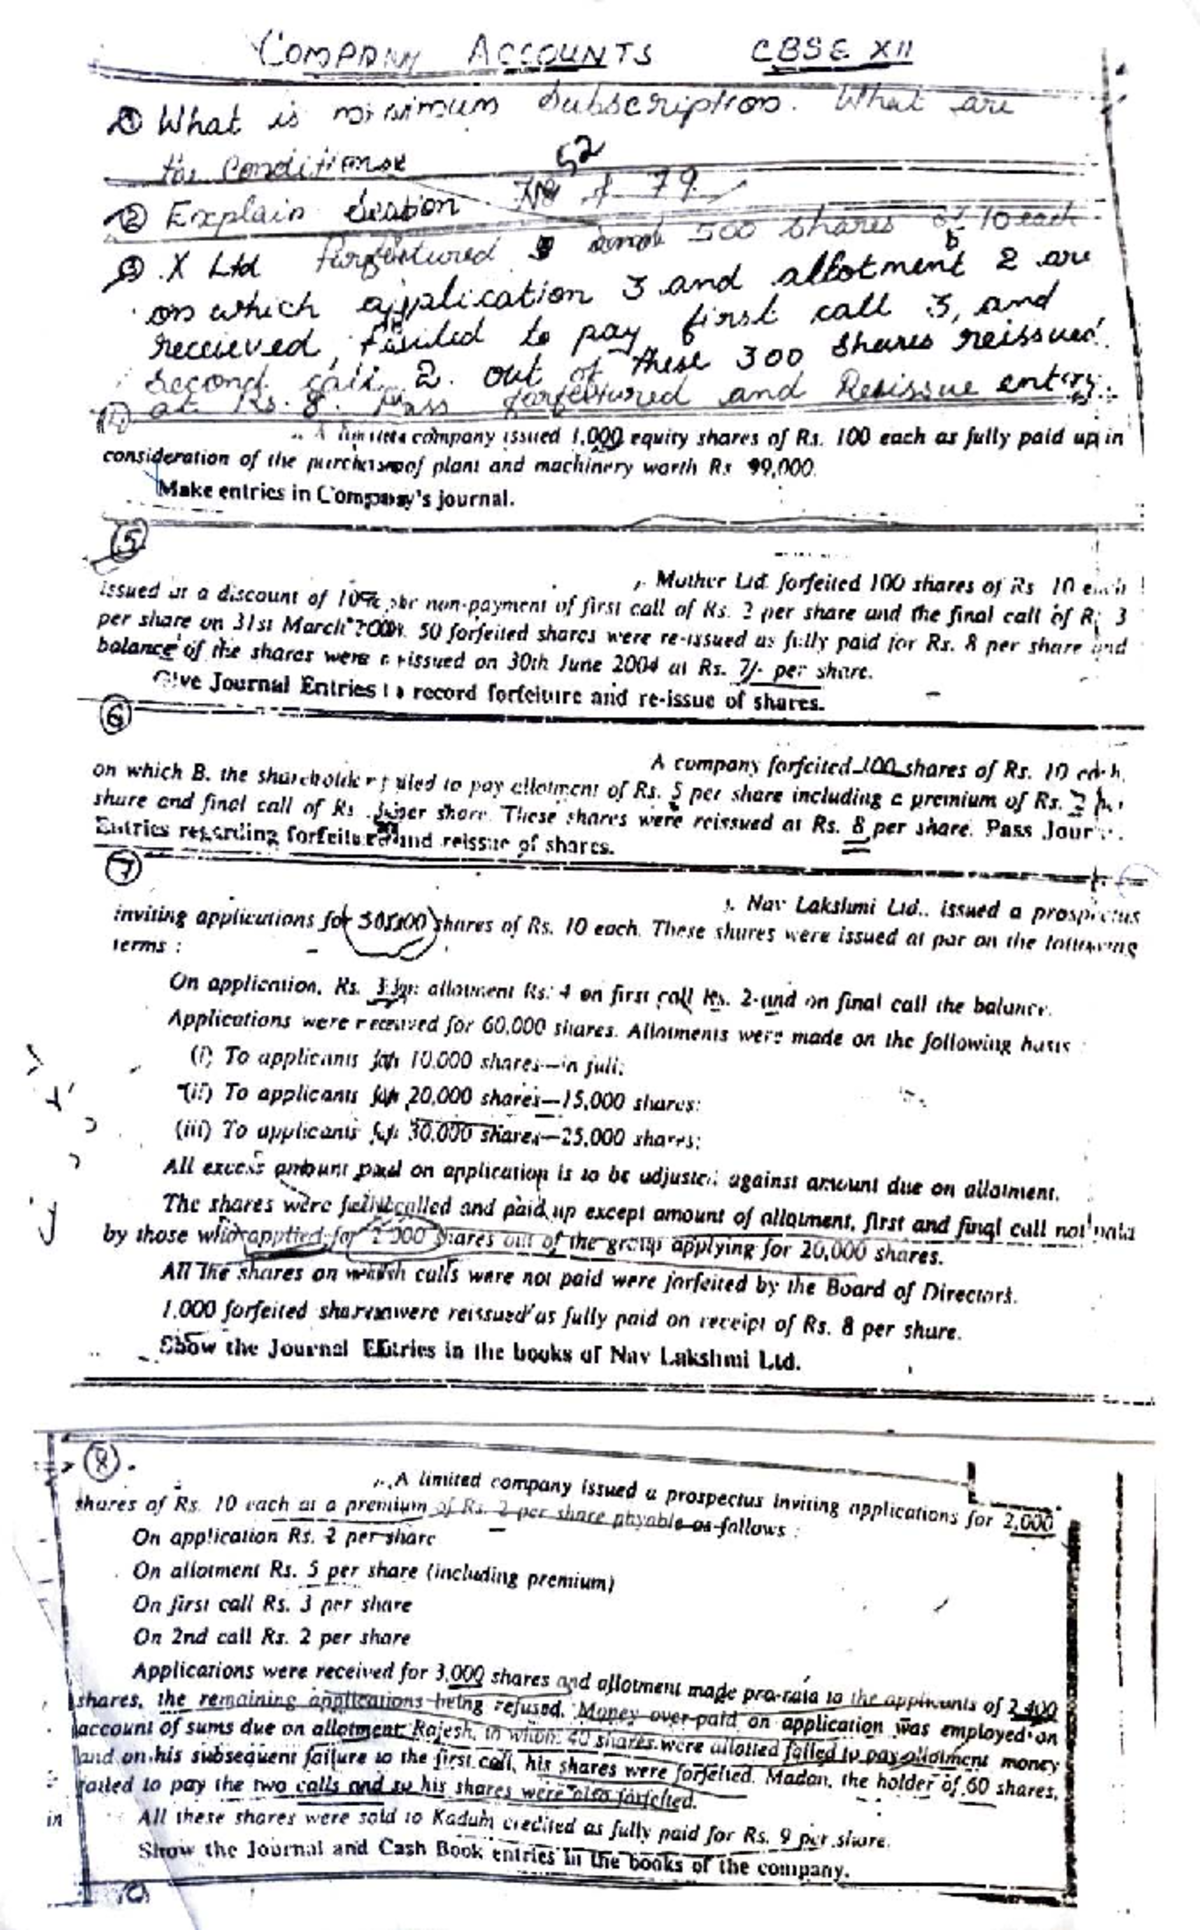 COMPANY ACCOUNTS CBSE XII
① What is minimum Subscription. What are
the Conditions
52
② Explain Section 78 & 79
③ X Ltd forfeitured 500 shares of 10 each
on which application 3 and allotment 2 are
receieved, failed to pay first call 3, and
second call 2. out of these 300 shares reissued
at Rs. 8. Pass forfeitured and Reissue entry.
④
A limited company issued 1,000 equity shares of Rs. 100 each as fully paid up in
consideration of the purchase of plant and machinery worth Rs 99,000.
Make entries in Company's journal.
⑤
Mother Ltd. forfeited 100 shares of Rs 10 each
issued at a discount of 10% for non-payment of first call of Rs. 2 per share and the final call of Rs 3
per share on 31st March 50 forfeited shares were re-issued as fully paid for Rs. 8 per share and
balance of the shares were issued on 30th June 2004 at Rs. 7/- per share.
Give Journal Entries to record forfeiture and re-issue of shares.
⑥
A company forfeited 100 shares of Rs. 10 each,
on which B. the shareholder failed to pay allotment of Rs. 5 per share including a premium of Rs. 2 per
share and final call of Rs per share. These shares were reissued at Rs. 8 per share. Pass
Entries regarding forfeiture and reissue of shares.
⑦
Nav Lakshmi Ltd., issued a prospectus
inviting applications for shares of Rs. 10 each. These shares were issued at par on the following
terms :
On application, Rs. 3 on allotment Rs. 4 on first call Rs. 2 and on final call the balance.
Applications were received for 60,000 shares. Allotments were made on the following basis :
(i) To applicants for 10,000 shares—in full;
(ii) To applicants for 20,000 shares—15,000 shares;
(iii) To applicants for 30,000 shares—25,000 shares;
All excess amount paid on application is to be adjusted against amount due on allotment.
The shares were fully called and paid up except amount of allotment, first and final call not paid
by those who applied for 2,000 shares out of the group applying for 20,000 shares.
All the shares on which calls were not paid were forfeited by the Board of Directors.
1,000 forfeited shares were reissued as fully paid on receipt of Rs. 8 per share.
Show the Journal Entries in the books of Nav Lakshmi Ltd.
⑧
A limited company issued a prospectus inviting applications for 2,000
shares of Rs. 10 each at a premium of Rs. 2 per share payable as follows :
On application Rs. 2 per share
On allotment Rs. 5 per share (including premium)
On first call Rs. 3 per share
On 2nd call Rs. 2 per share
Applications were received for 3,000 shares and allotment made pro-rata to the applicants of 2,400
shares, the remaining applications being refused. Money over-paid on application was employed on
account of sums due on allotment. Rajesh, to whom 40 shares were allotted failed to pay allotment money
and on his subsequent failure to the first call, his shares were forfeited. Madan, the holder of 60 shares,
failed to pay the two calls and so his shares were also forfeited.
in
All these shares were sold to Kadam credited as fully paid for Rs. 9 per share.
Show the Journal and Cash Book entries in the books of the company.